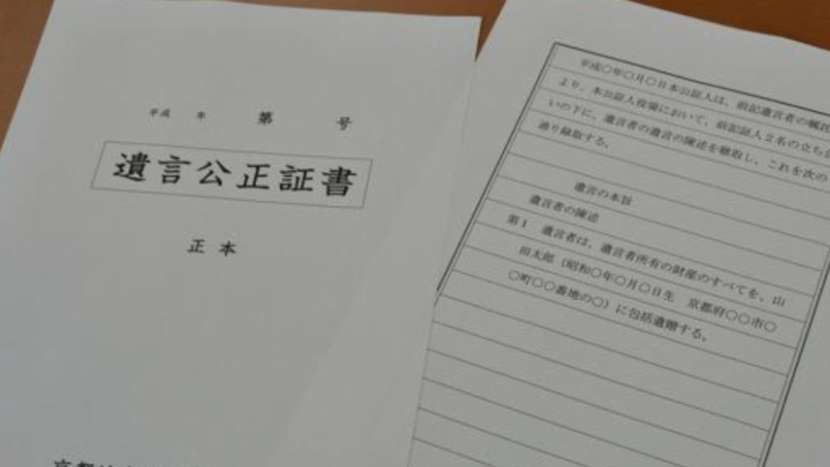 平成 年 第 号
遺言公正証書
正本
京都
平成○年○月○日本公証人は、前記遺言者の嘱託
より、本公証人役場において、前記証人２名の立ち会
いの下に、遺言者の遺言の陳述を聴取し、これを次の
通り録取する。
遺言の本旨
遺言者の陳述
第１ 遺言者は、遺言者所有の財産のすべてを、山
田太郎（昭和○年○月○日生 京都府○○市○
○町○○番地の○）に包括遺贈する。